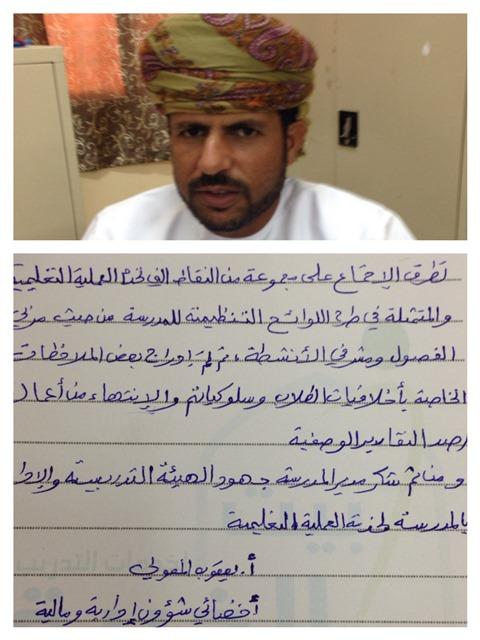 تطرق الإجتماع على مجموعة من النقاط التي تخدم العملية التعليمية
والمتمثلة في طرح اللوائح التنظيمية للمدرسة من حيث مربي
الفصول ومشرفي الأنشطة ، ثم تم إدراج بعض الملاحظات
الخاصة بأخلاقيات الطلاب وسلوكياتهم والإنتهاء من أعمال
رصد التقارير الوصفية
ومن ثم شكر مدير المدرسة جهود الهيئة التدريسية والإدا
بالمدرسة لخدمة العملية التعليمية
أ. يعقوب المعولي
أخصائي شؤون إدارية ومالية